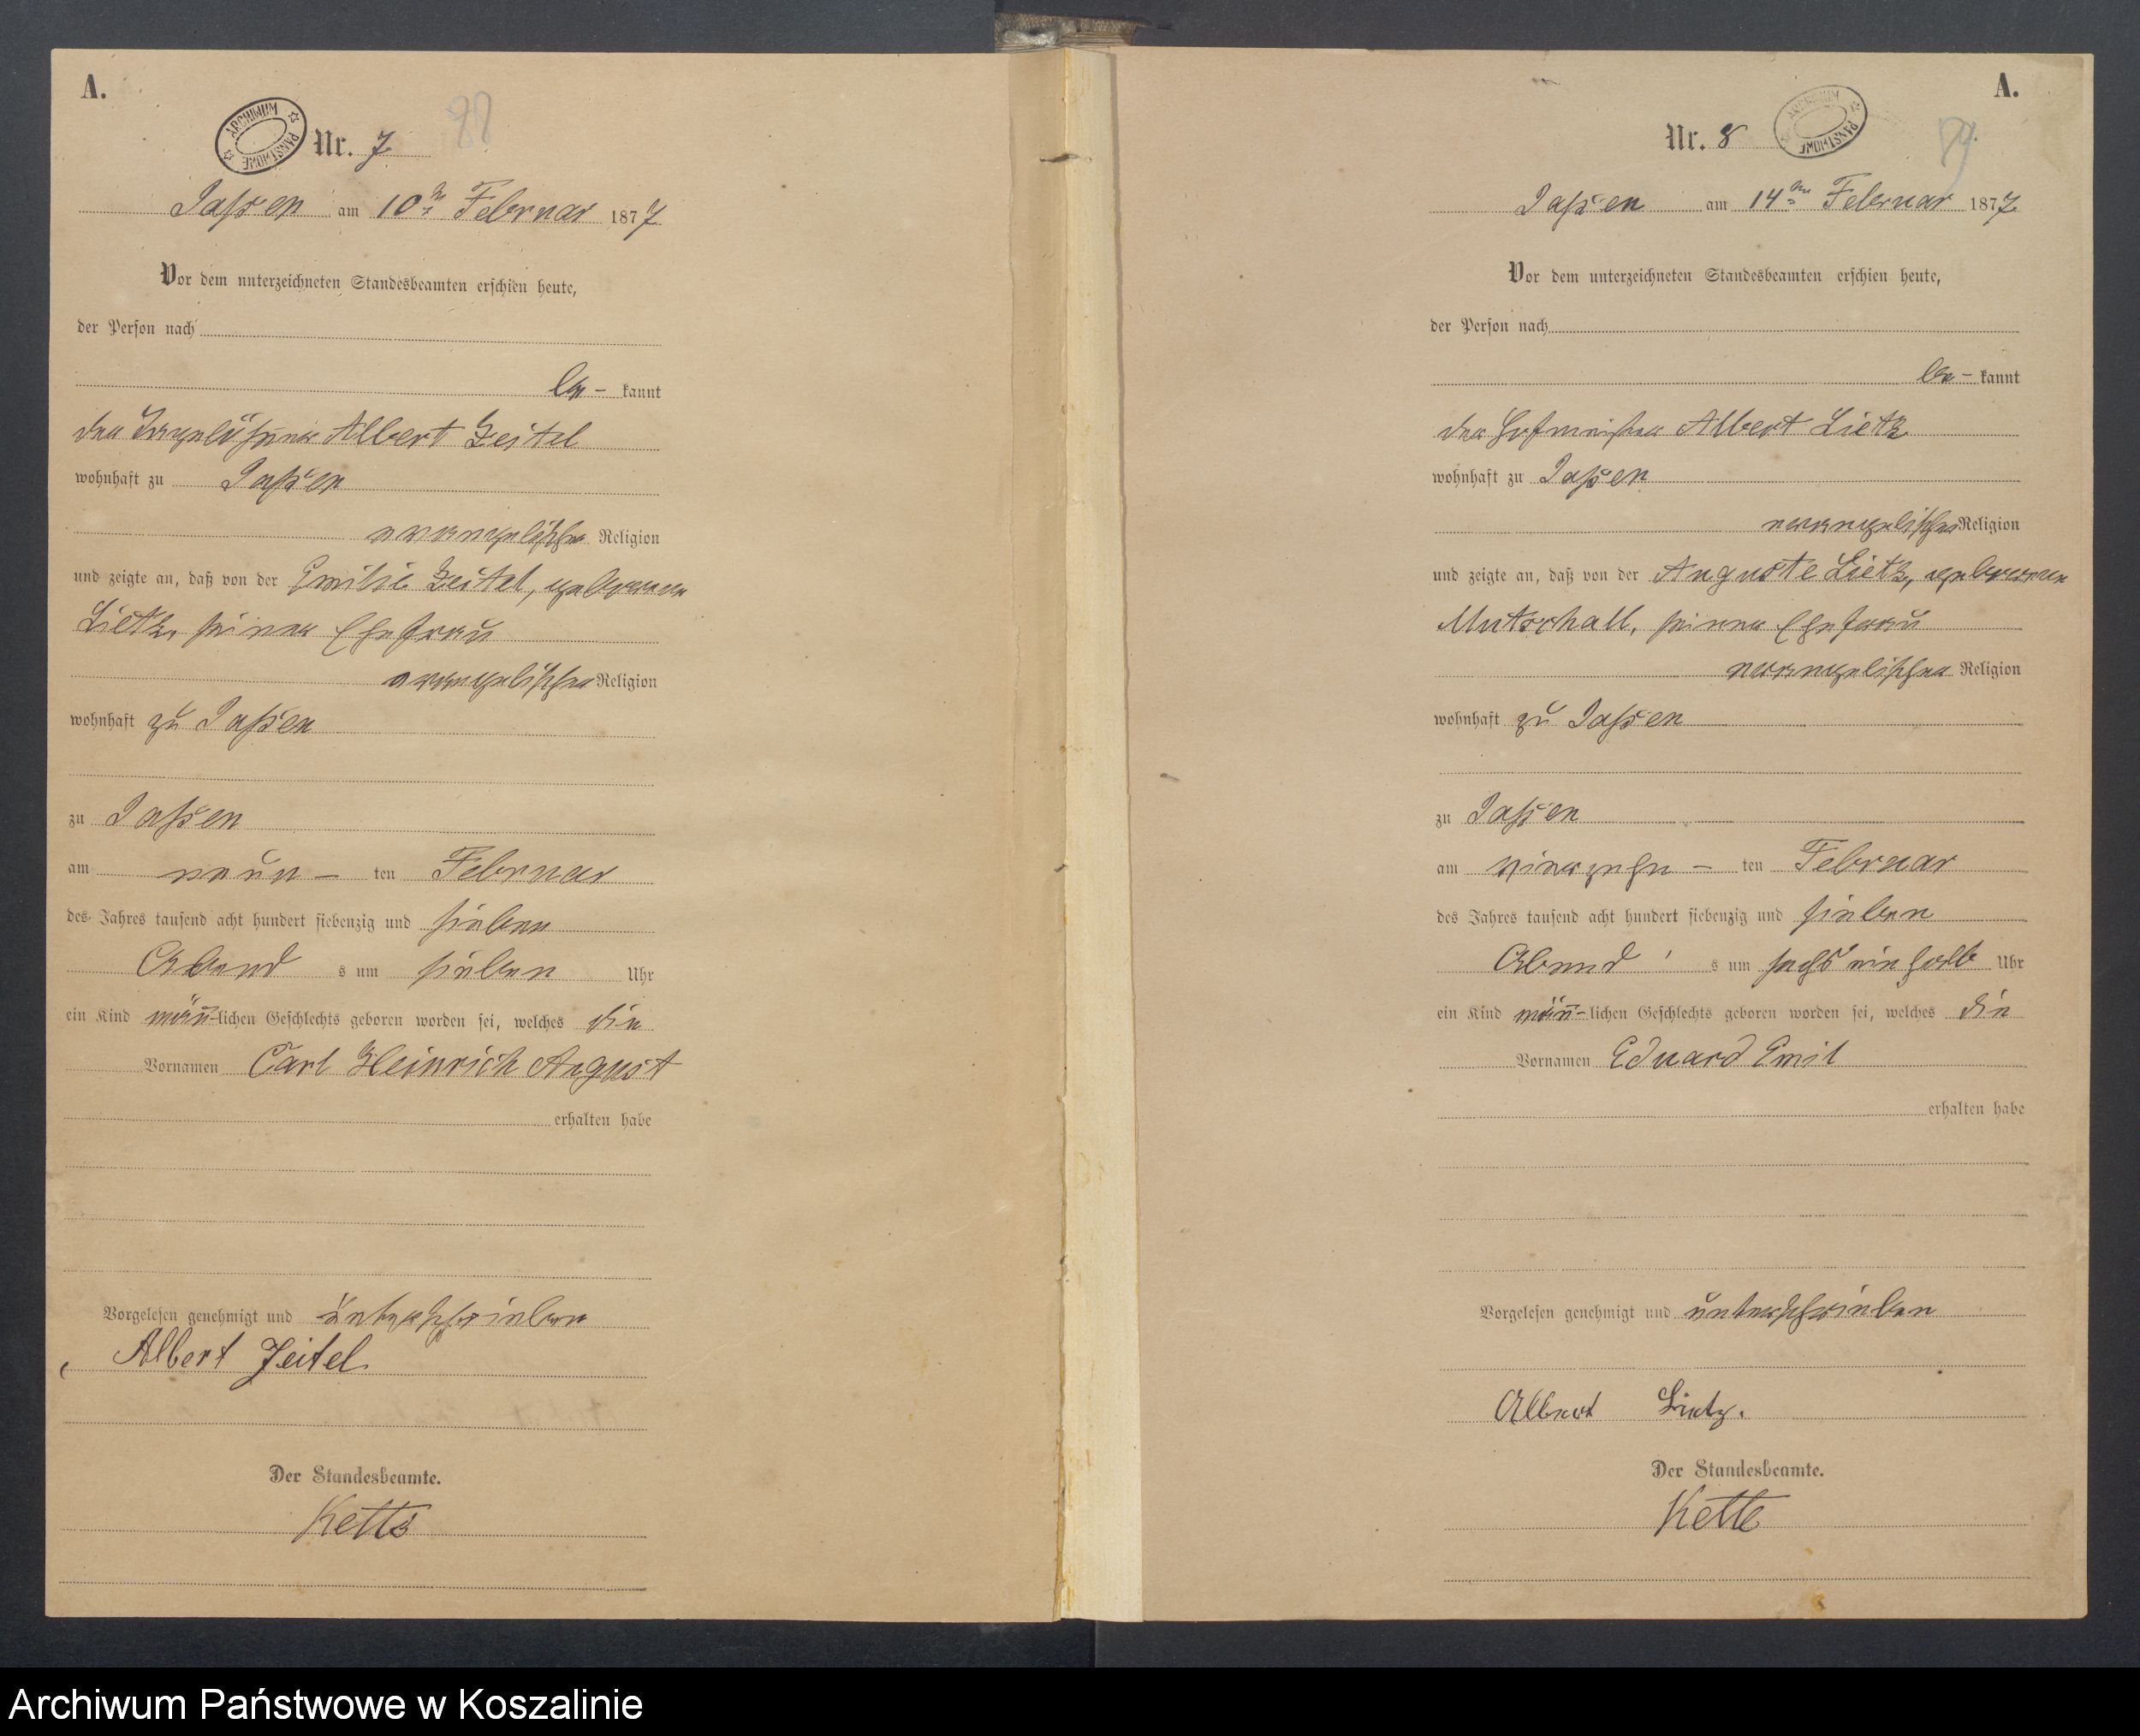 A.
ARCHIWUM PAŃSTWOWE
Nr. 7
88
Jassen am 10ten Februar 1877
Vor dem unterzeichneten Standesbeamten erschien heute,
der Person nach
be- kannt
der Albert Zeitel
wohnhaft zu Jassen
evangelischer Religion
und zeigte an, daß von der Emilie Zeitel, geborenen
Lietz, seiner Ehefrau
evangelischer Religion
wohnhaft zu Jassen
zu Jassen
am neun- ten Februar
des Jahres tausend acht hundert siebenzig und sieben
Abend s um sieben Uhr
ein Kind männ-lichen Geschlechts geboren worden sei, welches die
Vornamen Carl Heinrich August
erhalten habe
Vorgelesen genehmigt und unterschrieben
Albert Zeitel
Der Standesbeamte.
Kette
A.
ARCHIWUM PAŃSTWOWE
Nr. 8
89
Jassen am 14ten Februar 1877
Vor dem unterzeichneten Standesbeamten erschien heute,
der Person nach
be- kannt
der Hofmeister Albert Lietz
wohnhaft zu Jassen
evangelischer Religion
und zeigte an, daß von der Auguste Lietz, geborenen
Mutschall, seiner Ehefrau
evangelischer Religion
wohnhaft zu Jassen
zu Jassen
am vierzehn- ten Februar
des Jahres tausend acht hundert siebenzig und sieben
Abend s um sechs ein halb Uhr
ein Kind männ-lichen Geschlechts geboren worden sei, welches die
Vornamen Eduard Emil
erhalten habe
Vorgelesen genehmigt und unterschrieben
Albert Lietz.
Der Standesbeamte.
Kette
Archiwum Państwowe w Koszalinie